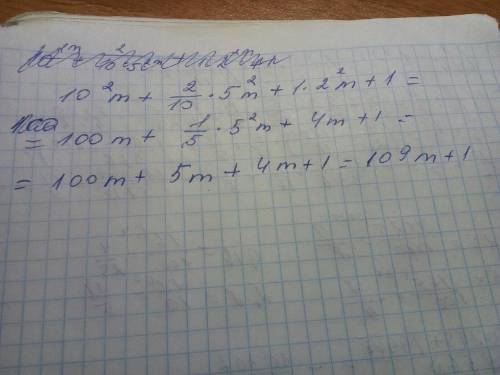 10²m + 2/10 · 5²m + 1 · 2²m + 1 =
= 100m + 1/5 · 5²m + 4m + 1 =
= 100m + 5m + 4m + 1 = 109m + 1